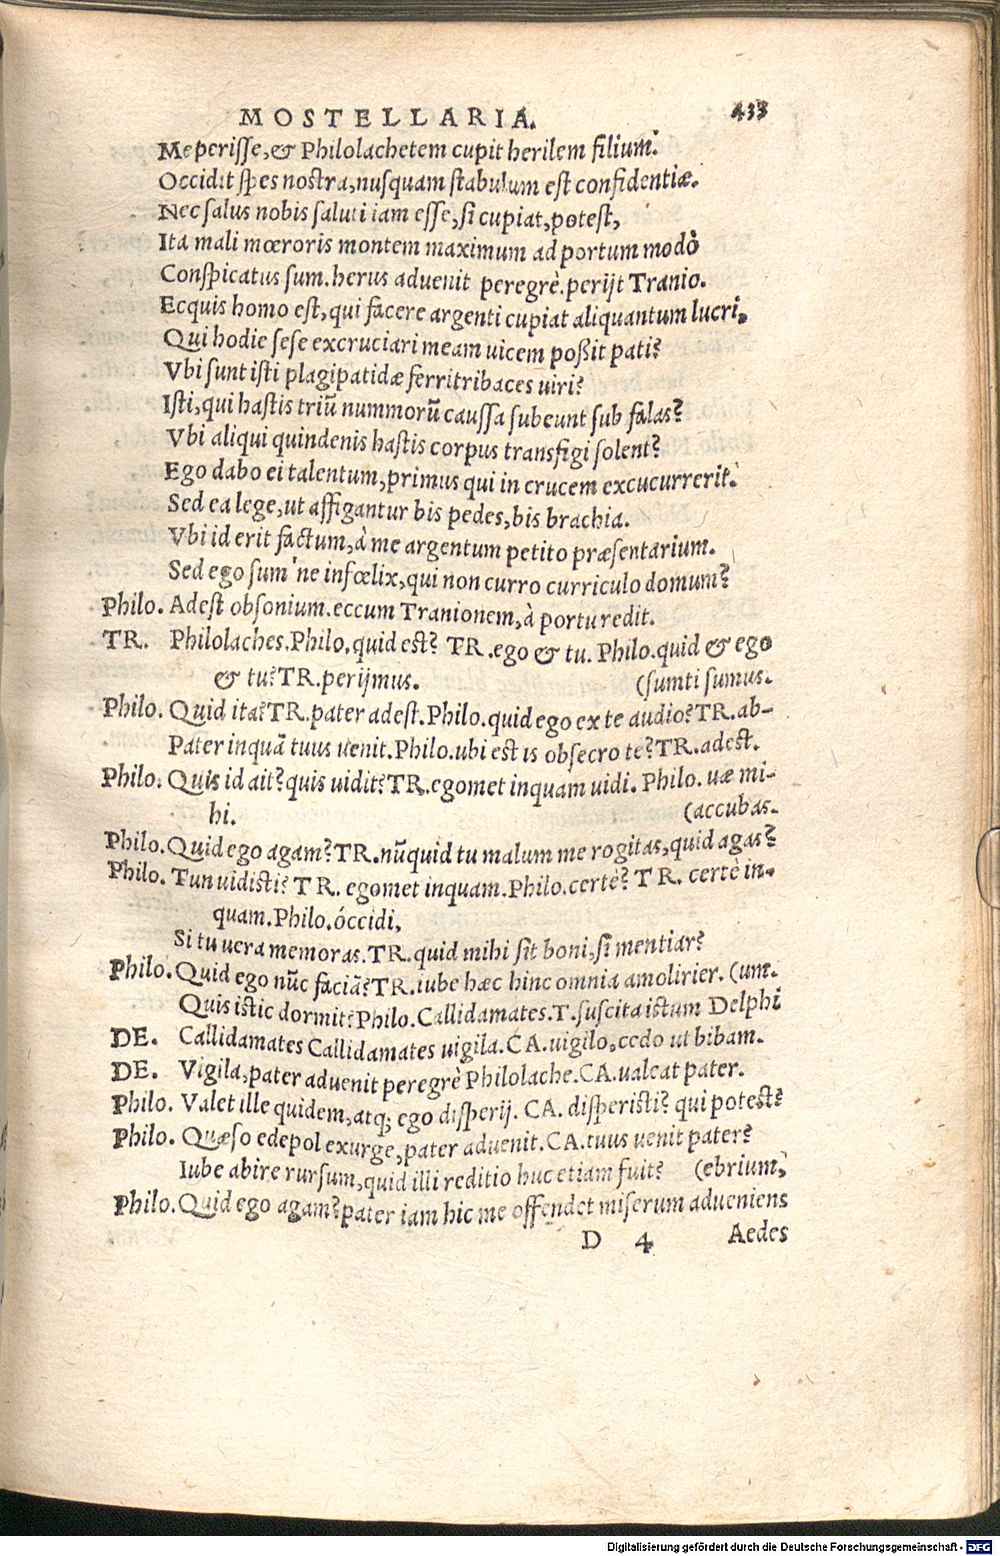 MOSTELLARIA. 433
Me perisse, & Philolachetem cupit herilem filium.
Occidit spes nostra, nusquam stabulum est confidentiæ.
Nec salus nobis saluti iam esse, si cupiat, potest,
Ita mali mœroris montem maximum ad portum modò
Conspicatus sum. herus advenit peregrè. perijt Tranio.
Ecquis homo est, qui facere argenti cupiat aliquantum lucri,
Qui hodie sese excruciari meam uicem poßit pati?
Vbi sunt isti plagipatidæ ferritribaces uiri?
Isti, qui hastis triũ nummorũ caussa subeunt sub falas?
Vbi aliqui quindenis hastis corpus transfigi solent?
Ego dabo ei talentum, primus qui in crucem excucurrerit.
Sed ea lege, ut affigantur bis pedes, bis brachia.
Vbi id erit factum, à me argentum petito præsentarium.
Sed ego sum'ne infœlix, qui non curro curriculo domum?
Philo. Adest obsonium. eccum Tranionem, à portu redit.
TR. Philolaches. Philo. quid est? TR. ego & tu. Philo. quid & ego
& tu? TR. perijmus. (sumti sumus.
Philo. Quid ita? TR. pater adest. Philo. quid ego ex te audio? TR. ab-
Pater inquã tuus uenit. Philo. ubi est is obsecro te? TR. adest.
Philo. Quis id ait? quis uidit? TR. egomet inquam uidi. Philo. uæ mi-
hi. (accubas.
Philo. Quid ego agam? TR. nũquid tu malum me rogitas, quid agas?
Philo. Tun uidisti? TR. egomet inquam. Philo. certè? TR. certè in-
quam. Philo. óccidi,
Si tu uera memoras. TR. quid mihi sit boni, si mentiar?
Philo. Quid ego nũc faciã? TR. iube hæc hinc omnia amolirier. (um.
Quis istic dormit? Philo. Callidamates. T. suscita istum Delphi
DE. Callidamates Callidamates uigila. CA. uigilo, cedo ut bibam.
DE. Vigila, pater aduenit peregrè Philolache. CA. ualeat pater.
Philo. Valet ille quidem, atq; ego disperij. CA. disperisti? qui potest?
Philo. Quæso edepol exurge, pater aduenit. CA. tuus uenit pater?
Iube abire rursum, quid illi reditio huc etiam fuit? (ebrium,
Philo. Quid ego agam? pater iam hic me offendet miserum adueniens
D 4 Aedes
Digitalisierung gefördert durch die Deutsche Forschungsgemeinschaft - DFG